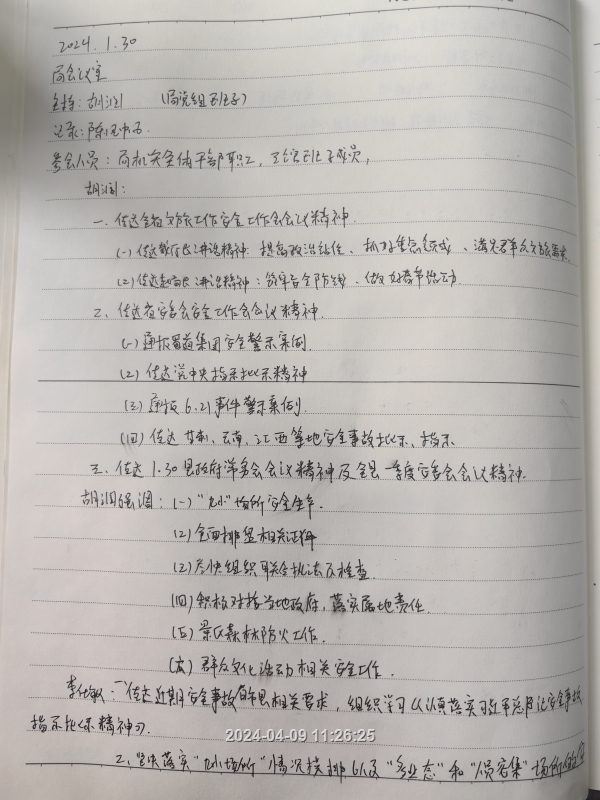 2024.1.30
局会议室
主持：胡润 （局党组班子）
记录：陈
参会人员：局机关全体干部职工，班子成员，
胡润：
一、传达全省文旅工作安全工作会会议精神
(一) 传达戴厅长讲话精神：提高政治站位、抓好重点领域、满足群众文旅需求
(2) 传达赵局长讲话精神：筑牢安全防线、做好春节活动
2、传达省安委会安全工作会会议精神.
(一) 通报蜀道集团安全警示案例.
(2) 传达党中央指示批示精神
(三) 通报6.21事件警示案例.
(四) 传达甘肃、云南、江西等地安全事故批示、指示
三、传达1.30县政府常务会会议精神及全县一季度安委会会议精神.
胡润强调：(一) "九小"场所安全生产.
(2) 全面排查相关证件
(三) 尽快组织联合执法及检查.
(四) 积极对接当地政府，落实属地责任.
(五) 景区森林防火工作.
(六) 群众文化活动相关安全工作.
李仕敏：一、传达近期安全事故省县相关要求，组织学习以认真落实习近平总书记安全事故
指示批示精神
2、坚决落实"九小场所"情况摸排以及"多业态"和"人员密集"场所
2024-04-09 11:26:25